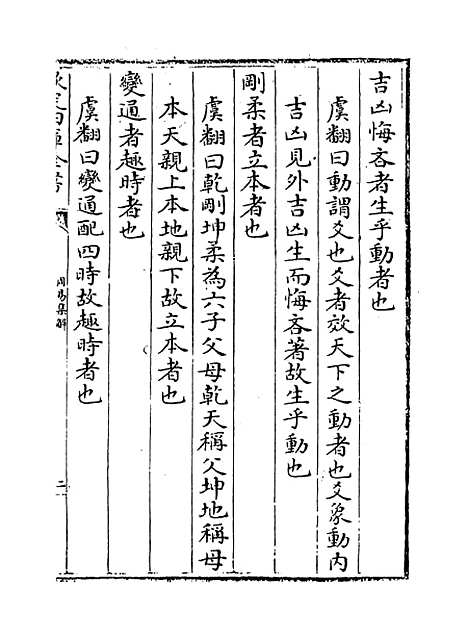 吉凶悔吝者生乎動者也
虞翻曰動謂爻也爻者效天下之動者也爻象動内
吉凶見外吉凶生而悔吝著故生乎動也
剛柔者立本者也
虞翻曰乾剛坤柔為六子父母乾天稱父坤地稱母
本天親上本地親下故立本者也
變通者趣時者也
虞翻曰變通配四時故趣時者也
欽定四庫全書
周易集解
二